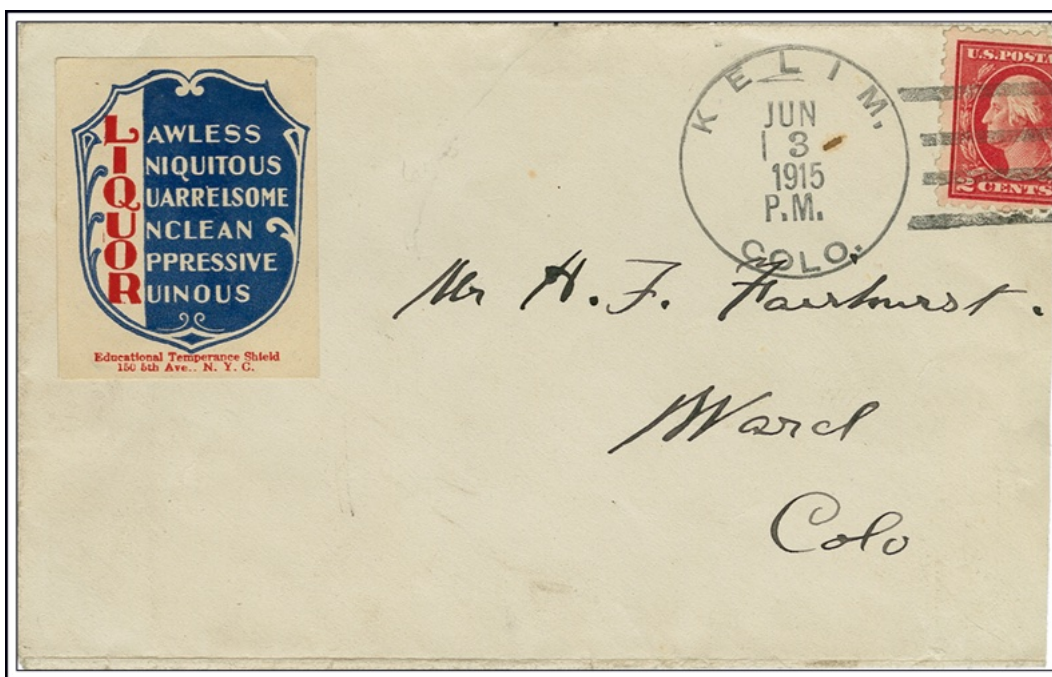 LAWLESS
INIQUITOUS
QUARRELSOME
UNCLEAN
OPPRESSIVE
RUINOUS
Educational Temperance Shield
150 5th Ave., N. Y. C.
KELIM,
JUN
13
1915
P.M.
COLO.
U.S. POSTA
2 CENTS
Mr H. F. Fairhurst.
Ward
Colo